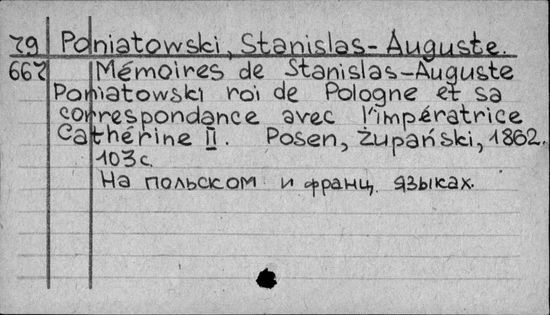 79 Poniatowski, Stanislas-Auguste.
667 Mémoires de Stanislas-Auguste
Poniatowski roi de Pologne et sa
correspondance avec l'impératrice
Cathérine II. Posen, Żupański, 1862.
103 с.
На польском и франц. языках.